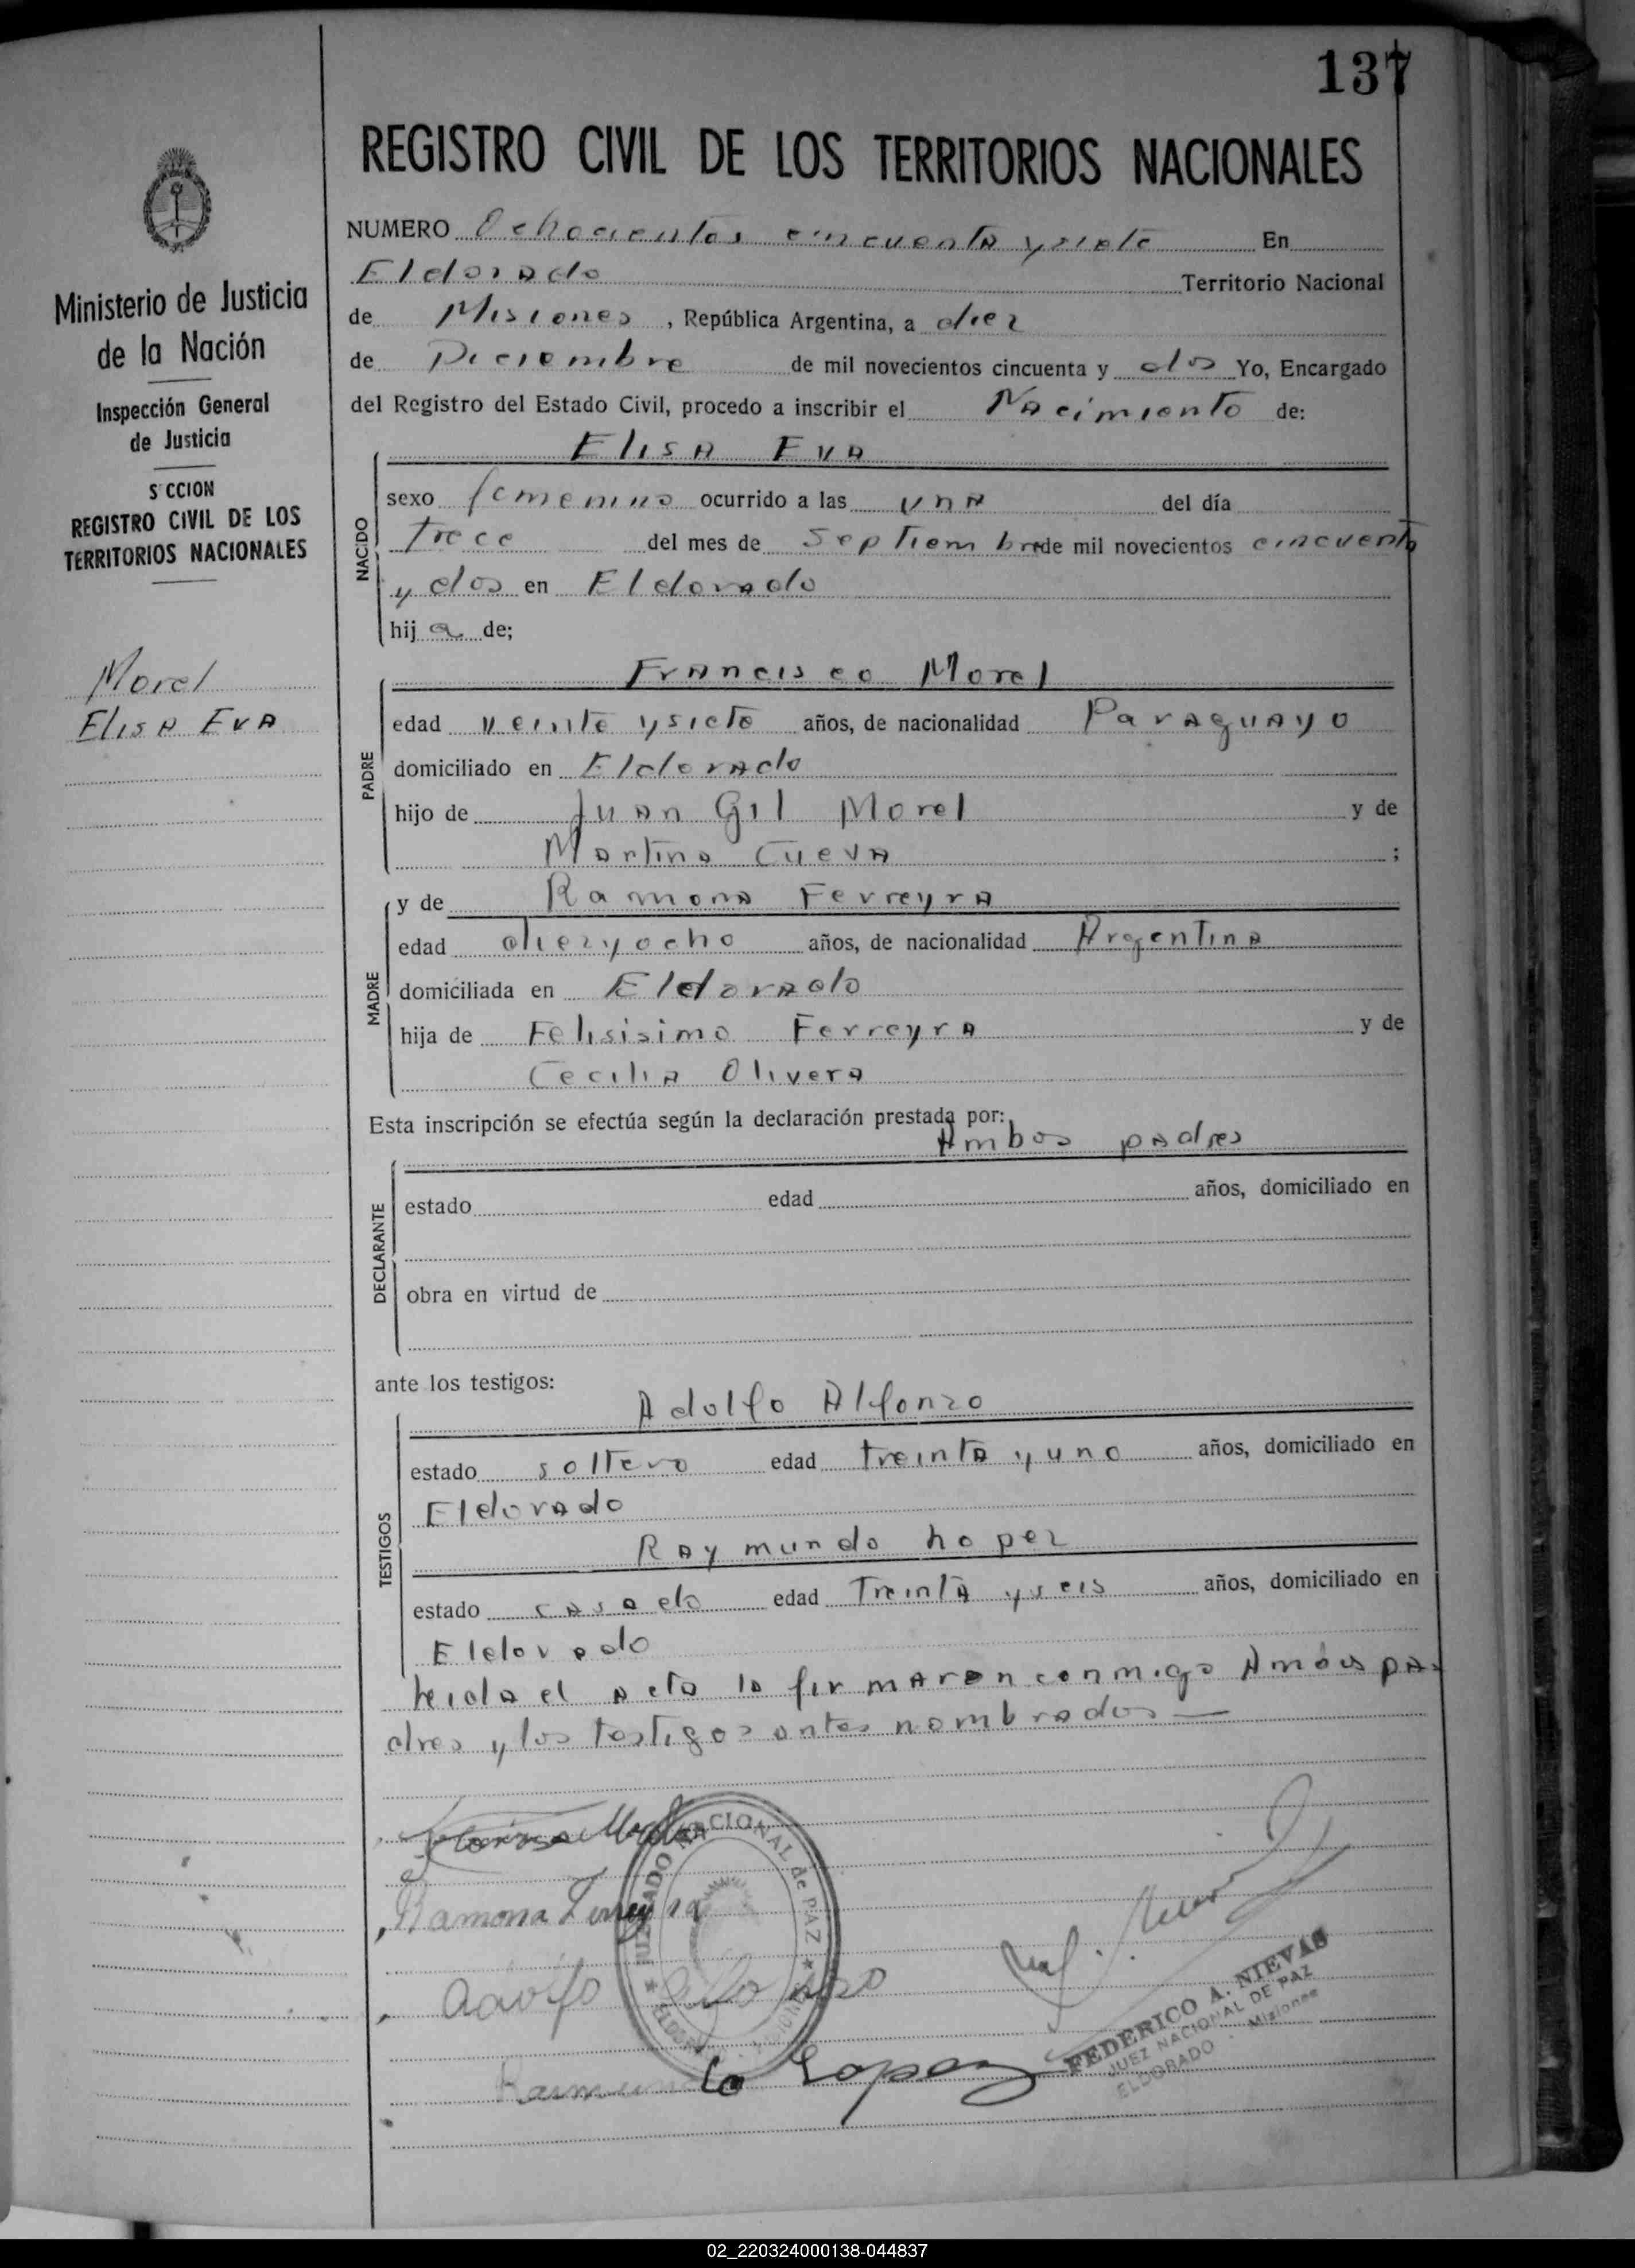 137
REGISTRO CIVIL DE LOS TERRITORIOS NACIONALES
Ministerio de Justicia
de la Nación
Inspección General
de Justicia
S CCION
REGISTRO CIVIL DE LOS
TERRITORIOS NACIONALES
Morel
Elisa Eva
NUMERO Ochocientos cincuenta y siete En
Eldorado Territorio Nacional
de Misiones , República Argentina, a diez
de Diciembre de mil novecientos cincuenta y dos Yo, Encargado
del Registro del Estado Civil, procedo a inscribir el Nacimiento de:
Elisa Eva
NACIDO
sexo femenino ocurrido a las una del día
trece del mes de Septiembre de mil novecientos cincuenta
y dos en Eldorado
hij a de;
Francisco Morel
PADRE
edad veinte y siete años, de nacionalidad Paraguayo
domiciliado en Eldorado
hijo de Juan Gil Morel y de
Martina Cueva ;
y de Ramona Ferreyra
MADRE
edad diez y ocho años, de nacionalidad Argentina
domiciliada en Eldorado
hija de Felisisimo Ferreyra y de
Cecilia Olivera
Esta inscripción se efectúa según la declaración prestada por:
Ambos padres
DECLARANTE
estado edad años, domiciliado en
obra en virtud de
ante los testigos:
Adolfo Alfonzo
TESTIGOS
estado soltero edad treinta y uno años, domiciliado en
Eldorado
Raymundo Lopez
estado casado edad Treinta y seis años, domiciliado en
Eldorado
Leida el acta la firmaron conmigo Ambos pa-
dres y los testigos antes nombrados —
JUZGADO NACIONAL de PAZ
Ramona Ferreyra
Adolfo
Lopez
FEDERICO A. NIEVAS
JUEZ NACIONAL DE PAZ
ELDORADO - Misiones
02_220324000138-044837